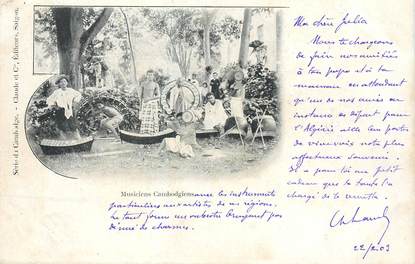 Série du Cambodge. – Claude et Cie, Éditeurs, Saïgon.
Musiciens Cambodgiens
avec les instruments
particuliers aux artistes de ces régions.
Le tout forme un orchestre bruyant pas
dénué de charmes.
Ma chère Julia
Nous te chargeons
de faire nos amitiés
à ton papa et à ta
maman en attendant
qu'un de nos amis en
instance de départ pour
l'Algérie aille leur porter
de vive voix notre plus
affectueux souvenir.
Il a pour toi un petit
cadeau que ta tante l'a
chargé de te remettre.
22/2.03